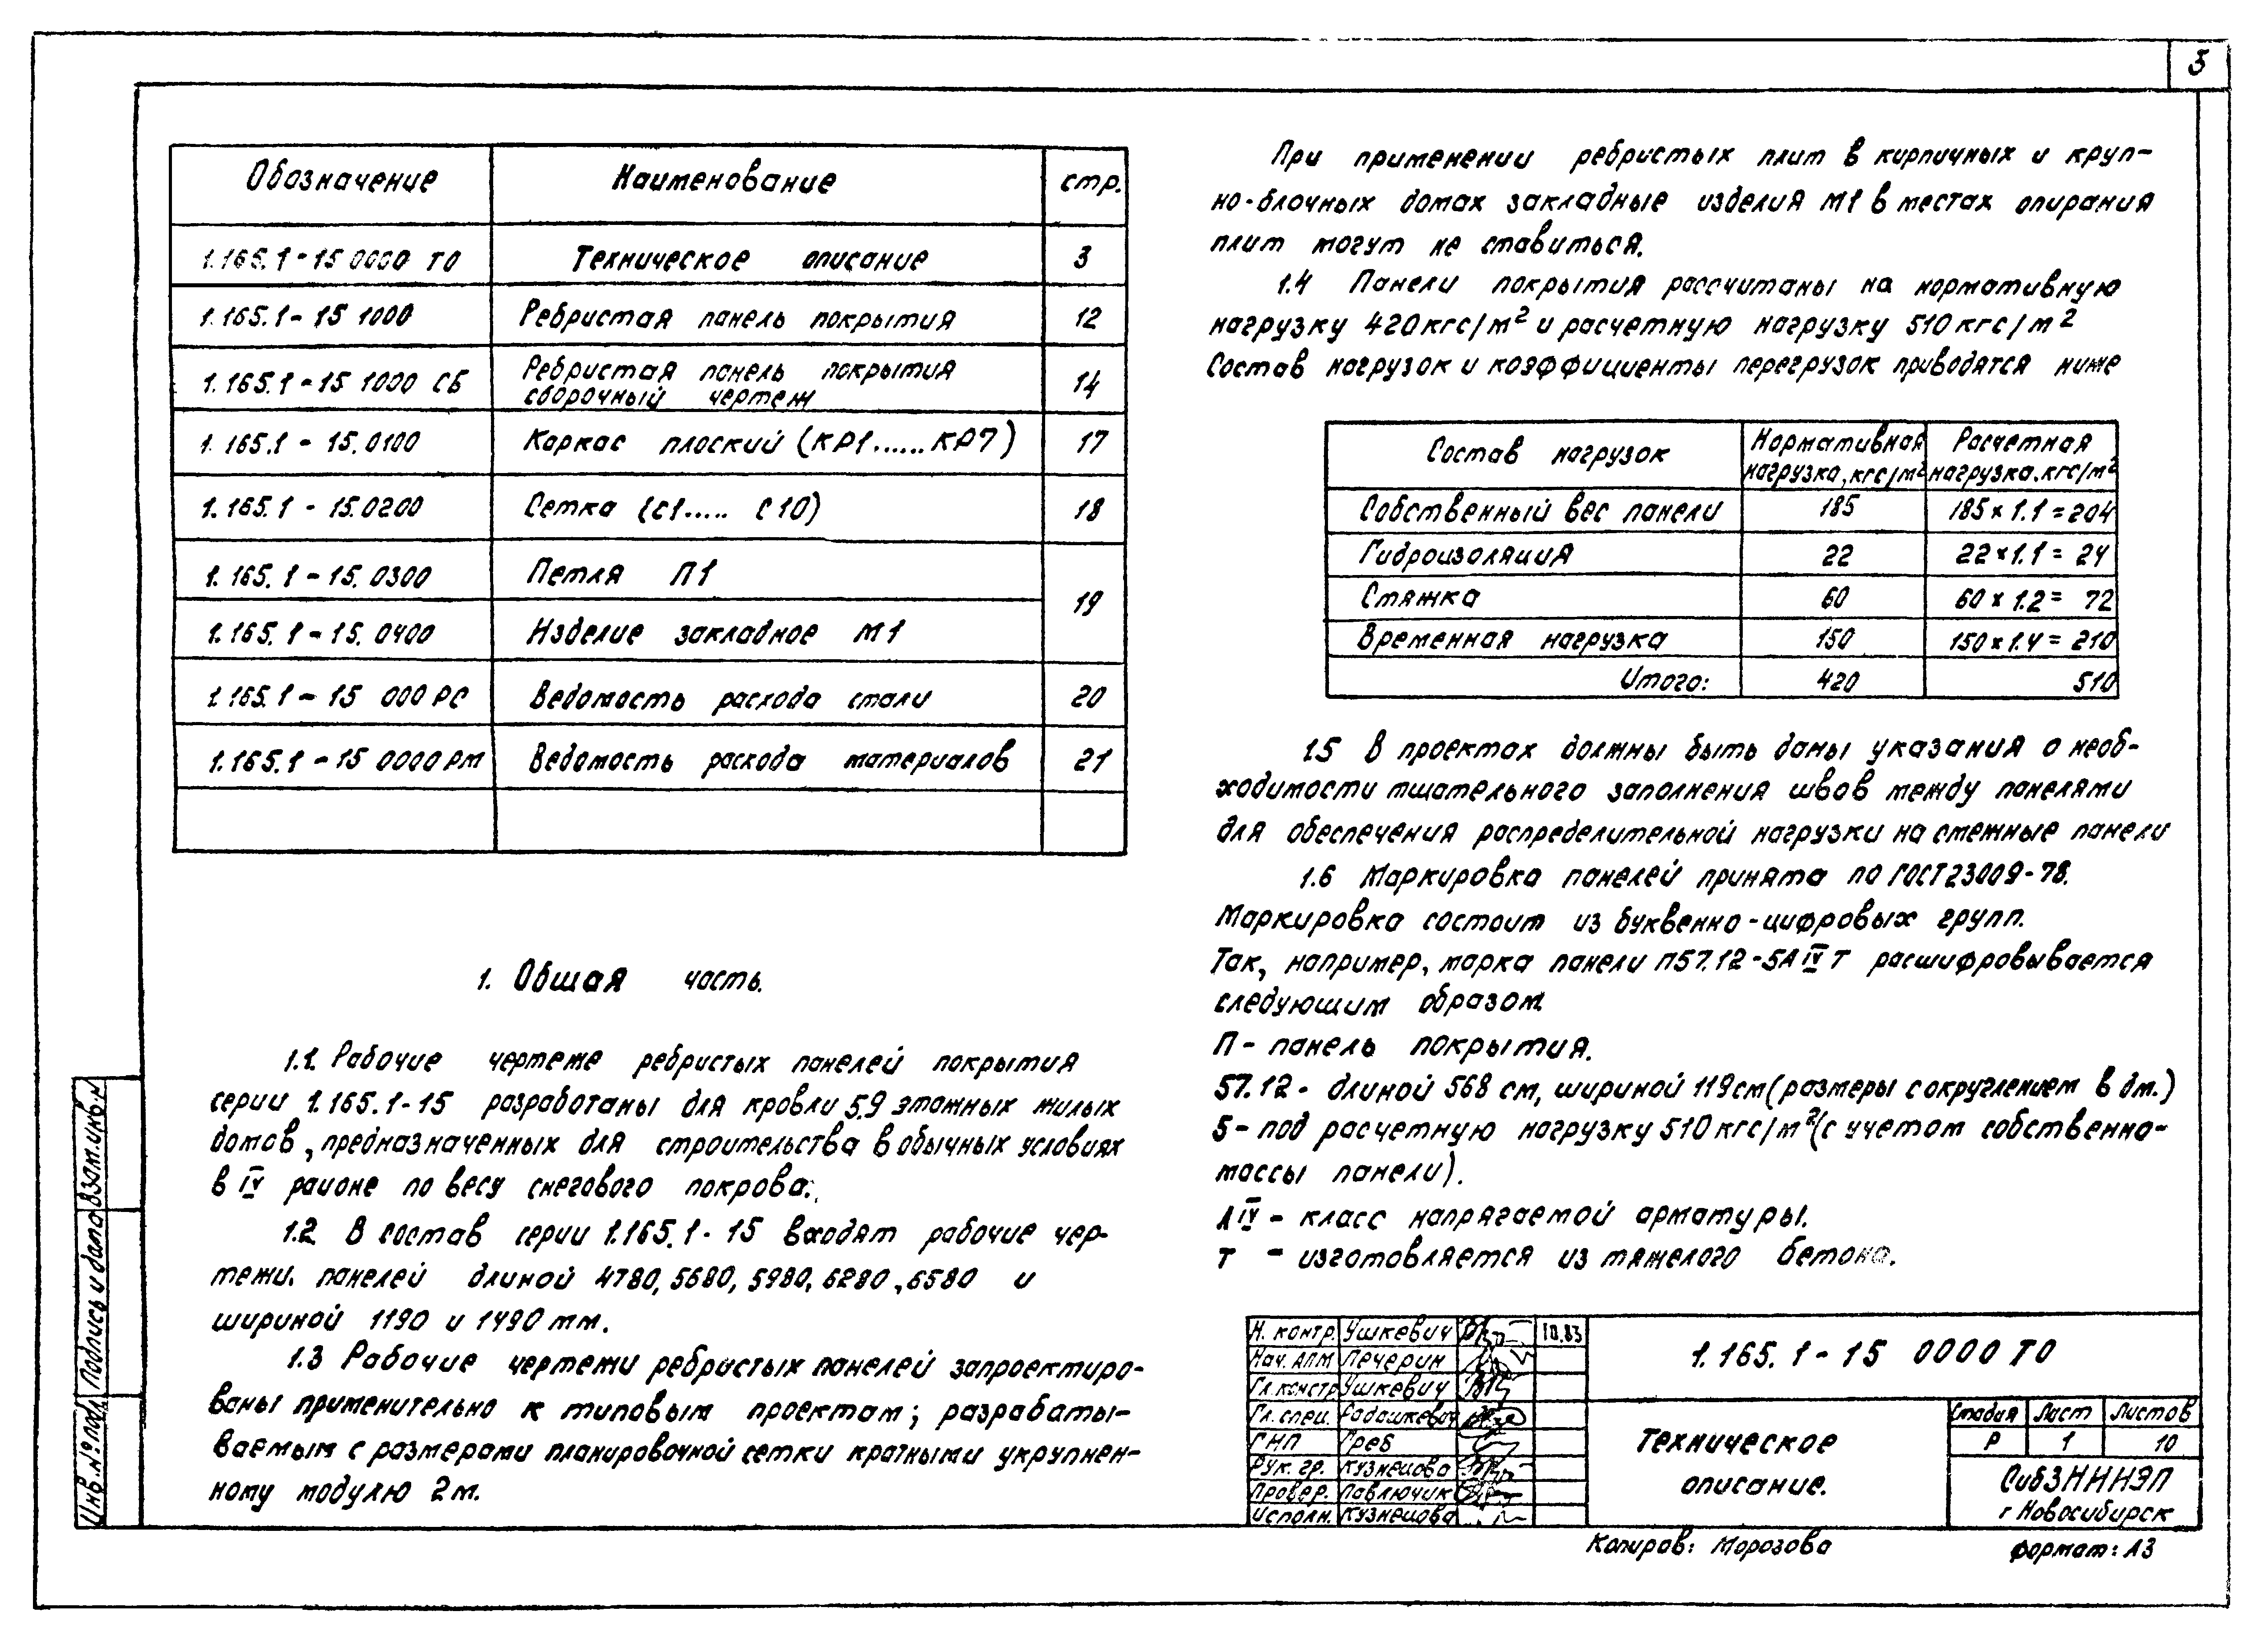 3
Обозначение Наименование стр.
1.165.1-15 0000 ТО Техническое описание 3
1.165.1-15 1000 Ребристая панель покрытия 12
1.165.1-15 1000 СБ Ребристая панель покрытия
сборочный чертеж 14
1.165.1-15.0100 Каркас плоский (КР1......КР7) 17
1.165.1-15.0200 Сетка (С1..... С10) 18
1.165.1-15.0300 Петля П1
19
1.165.1-15.0400 Изделие закладное М1
1.165.1-15 000 РС Ведомость расхода стали 20
1.165.1-15 0000 РМ Ведомость расхода материалов 21
1. Общая часть.
1.1. Рабочие чертеже ребристых панелей покрытия
серии 1.165.1-15 разработаны для кровли 5.9 этажных жилых
домов, предназначенных для строительства в обычных условиях
в IV районе по весу снегового покрова.
1.2 В состав серии 1.165.1-15 входят рабочие чер-
тежи. панелей длиной 4780, 5680, 5980, 6280, 6580 и
шириной 1190 и 1490 мм.
1.3 Рабочие чертежи ребристых панелей запроектиро-
ваны применительно к типовым проектам; разрабаты-
ваемым с размерами планировочной сетки кратными укрупнен-
ному модулю 2м.
При применении ребристых плит в кирпичных и круп-
но-блочных домах закладные изделия М1 в местах опирания
плит могут не ставиться.
1.4 Панели покрытия рассчитаны на нормативную
нагрузку 420кгс/м² и расчетную нагрузку 510 кгс/м²
Состав нагрузок и коэффициенты перегрузок приводятся ниже
Состав нагрузок Нормативная нагрузка, кгс/м² Расчетная нагрузка. кгс/м²
Собственный вес панели 185 185 x 1.1 = 204
Гидроизоляция 22 22 x 1.1 = 24
Стяжка 60 60 x 1.2 = 72
Временная нагрузка 150 150 x 1.4 = 210
Итого: 420 510
1.5 В проектах должны быть даны указания о необ-
ходимости тщательного заполнения швов между панелями
для обеспечения распределительной нагрузки на смежные панели
1.6 Маркировка панелей принята по ГОСТ 23009-78.
Маркировка состоит из буквенно-цифровых групп.
Так, например, марка панели П57.12-5АIVТ расшифровывается
следующим образом.
П- панель покрытия.
57.12- длиной 568 см, шириной 119см (размеры с округлением в дм.)
5- под расчетную нагрузку 510 кгс/м² (с учетом собственно-
массы панели).
АIV- класс напрягаемой арматуры.
Т - изготовляется из тяжелого бетона.
Н. контр. Ушкевич 10.83
Нач. АПМ Печерин
Гл.констр Ушкевич
Гл. спец. Радашкевич
ГИП Греб
Рук. гр. Кузнецова
Провер. Павлючик
Исполн. Кузнецова
1.165.1-15 0000 ТО
Техническое
описание.
Стадия Лист Листов
Р 1 10
СибЗНИИЭП
г Новосибирск
Копиров: Морозова формат: А3
Инв.№ подл. Подпись и дата Взам.инв.№